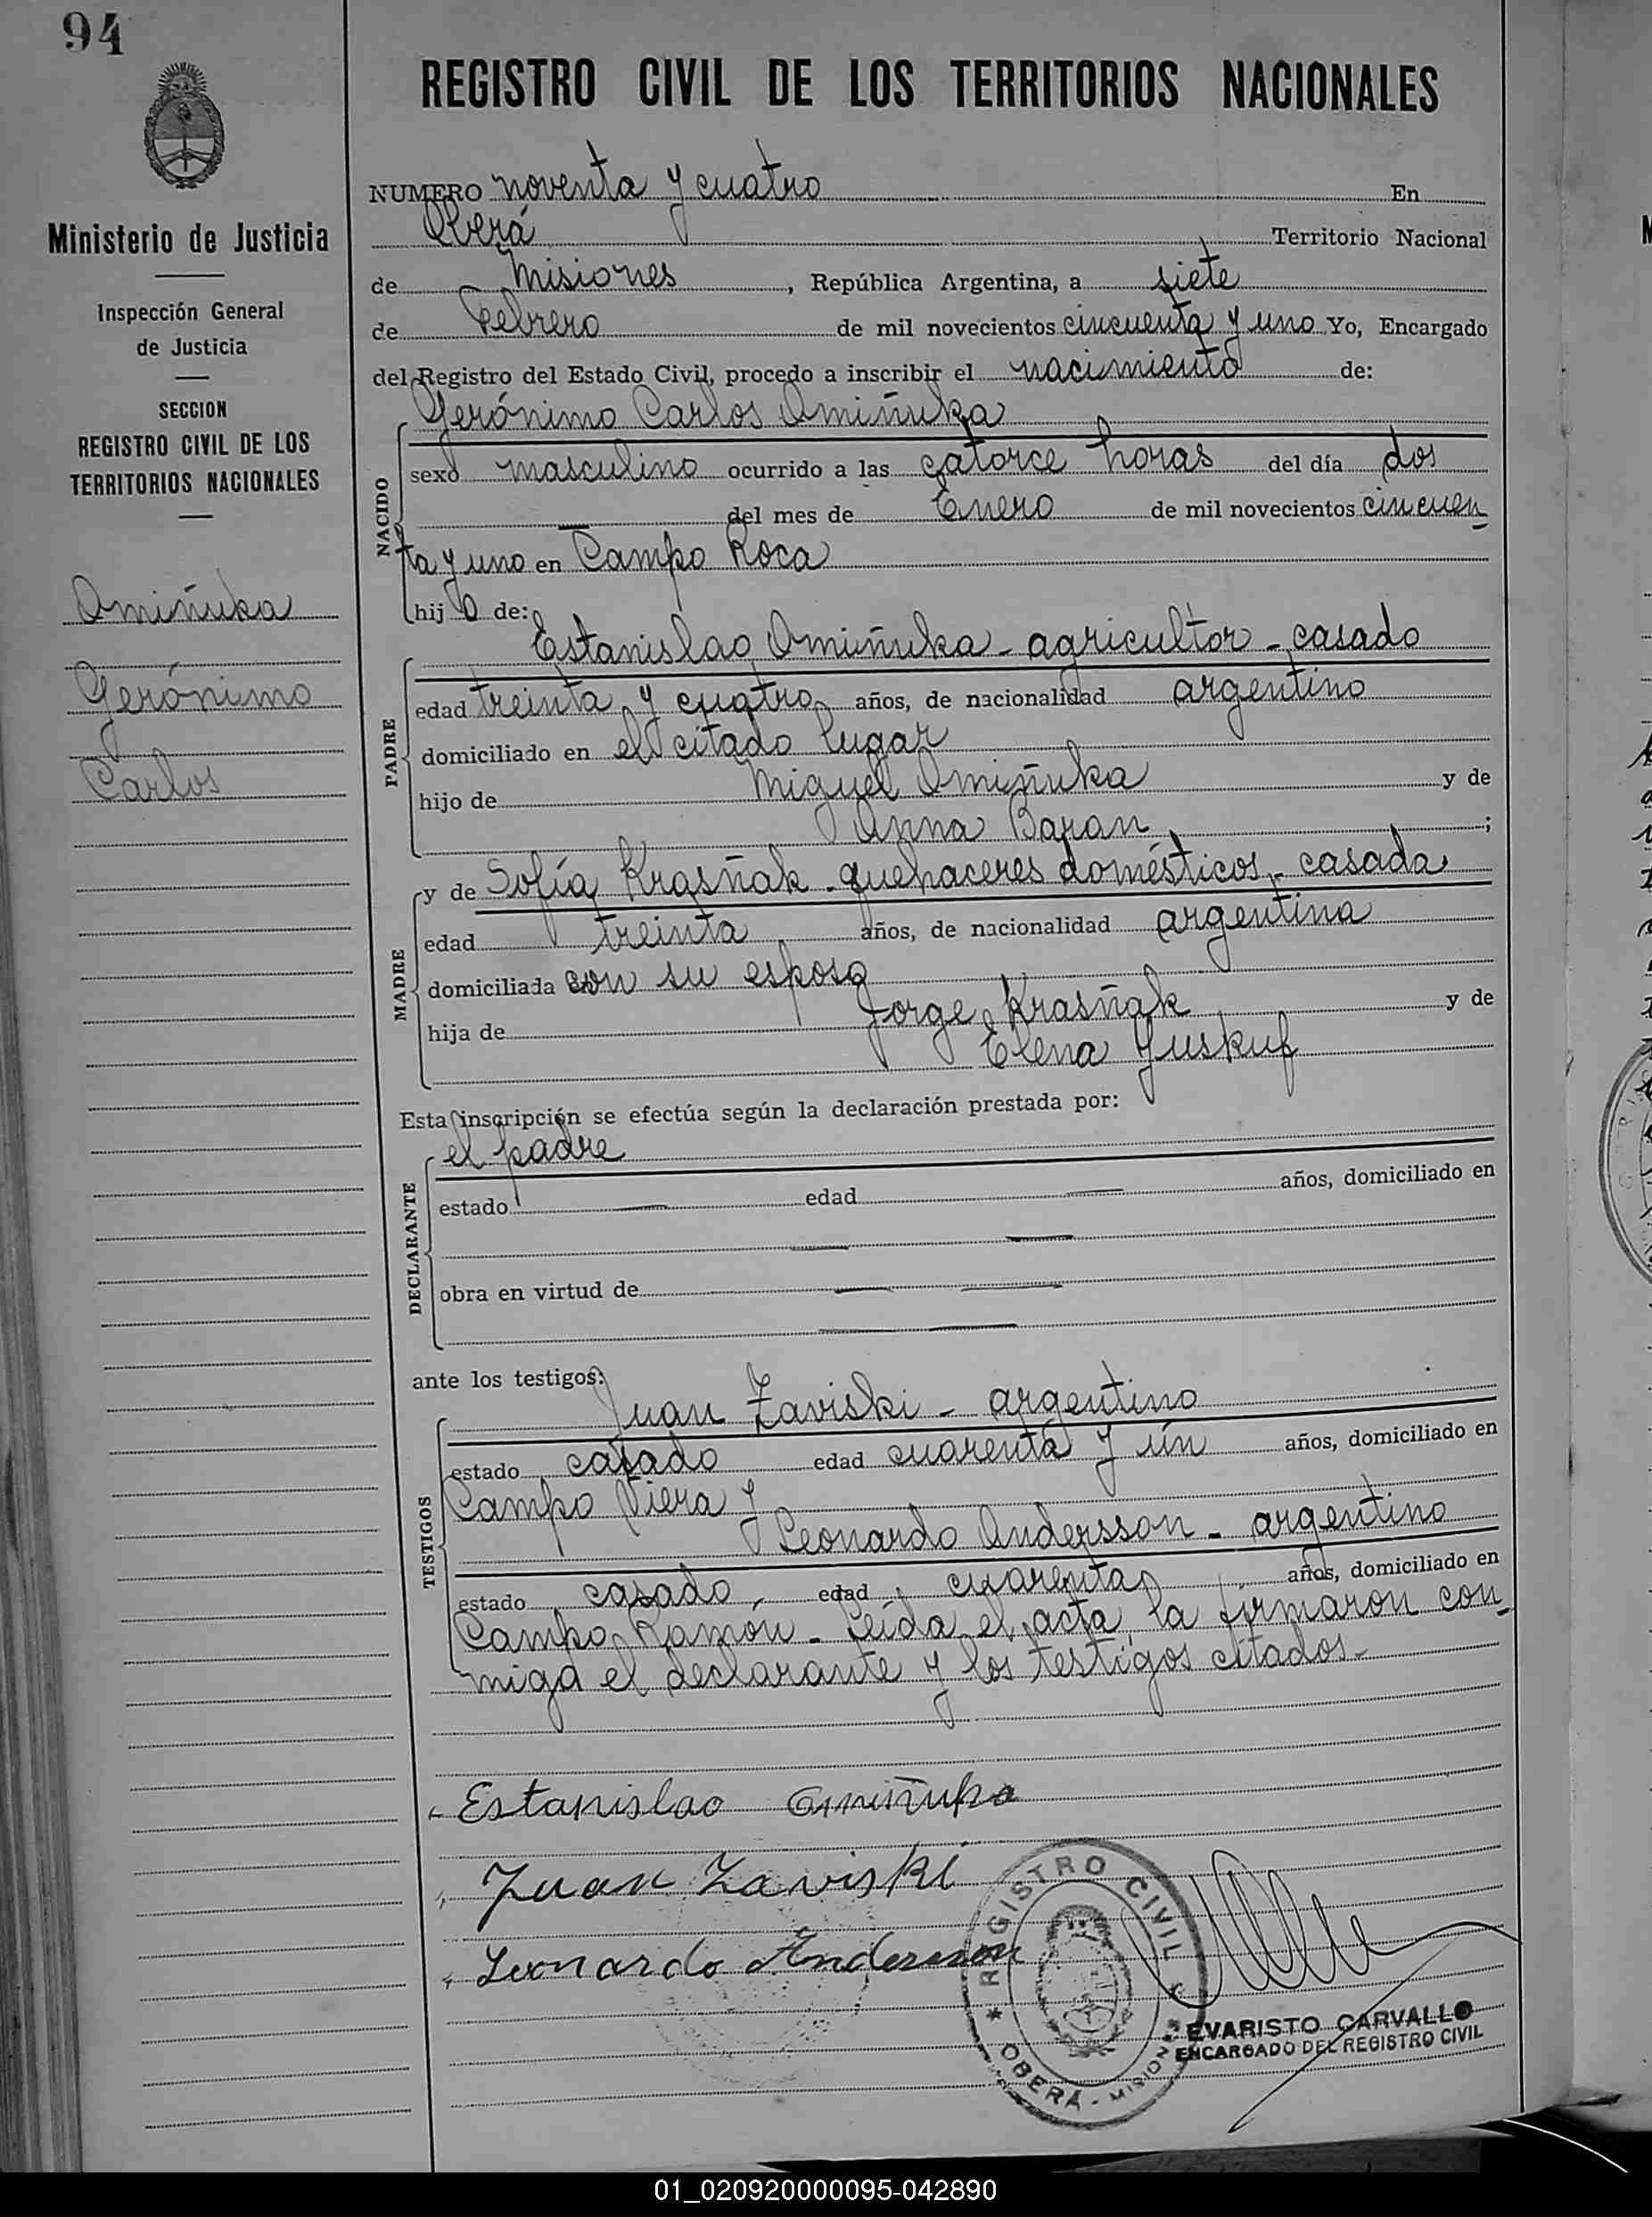 94
REGISTRO CIVIL DE LOS TERRITORIOS NACIONALES
Ministerio de Justicia
Inspección General
de Justicia
SECCION
REGISTRO CIVIL DE LOS
TERRITORIOS NACIONALES
Omiñuka
Gerónimo
Carlos
NUMERO noventa y cuatro En
Oberá Territorio Nacional
de Misiones, República Argentina, a siete
de Febrero de mil novecientos cincuenta y uno Yo, Encargado
del Registro del Estado Civil, procedo a inscribir el nacimiento de:
NACIDO
Gerónimo Carlos Omiñuka
sexo masculino ocurrido a las catorce horas del día dos
del mes de Enero de mil novecientos cincuen
ta y uno en Campo Roca
hijo de:
PADRE
Estanislao Omiñuka - agricultor - casado
edad treinta y cuatro años, de nacionalidad argentino
domiciliado en el citado lugar
hijo de Miguel Omiñuka y de
Anna Baran;
MADRE
y de Sofía Krasñak - quehaceres domésticos - casada
edad treinta años, de nacionalidad argentina
domiciliada con su esposo
hija de Jorge Krasñak y de
Elena Yuskuf
Esta inscripción se efectúa según la declaración prestada por:
DECLARANTE
el padre
estado — edad — años, domiciliado en
— —
obra en virtud de — —
— —
ante los testigos:
TESTIGOS
Juan Zaviski - argentino
estado casado edad cuarenta y un años, domiciliado en
Campo Viera y
Leonardo Andersson - argentino
estado casado edad cuarenta años, domiciliado en
Campo Ramón - Leída el acta, la firmaron con
migo el declarante y los testigos citados.-
Estanislao Omiñuka
Juan Zaviski
Leonardo Andersson
REGISTRO CIVIL
OBERÁ - MISIONES
EVARISTO CARVALLO
ENCARGADO DEL REGISTRO CIVIL
01_020920000095-042890